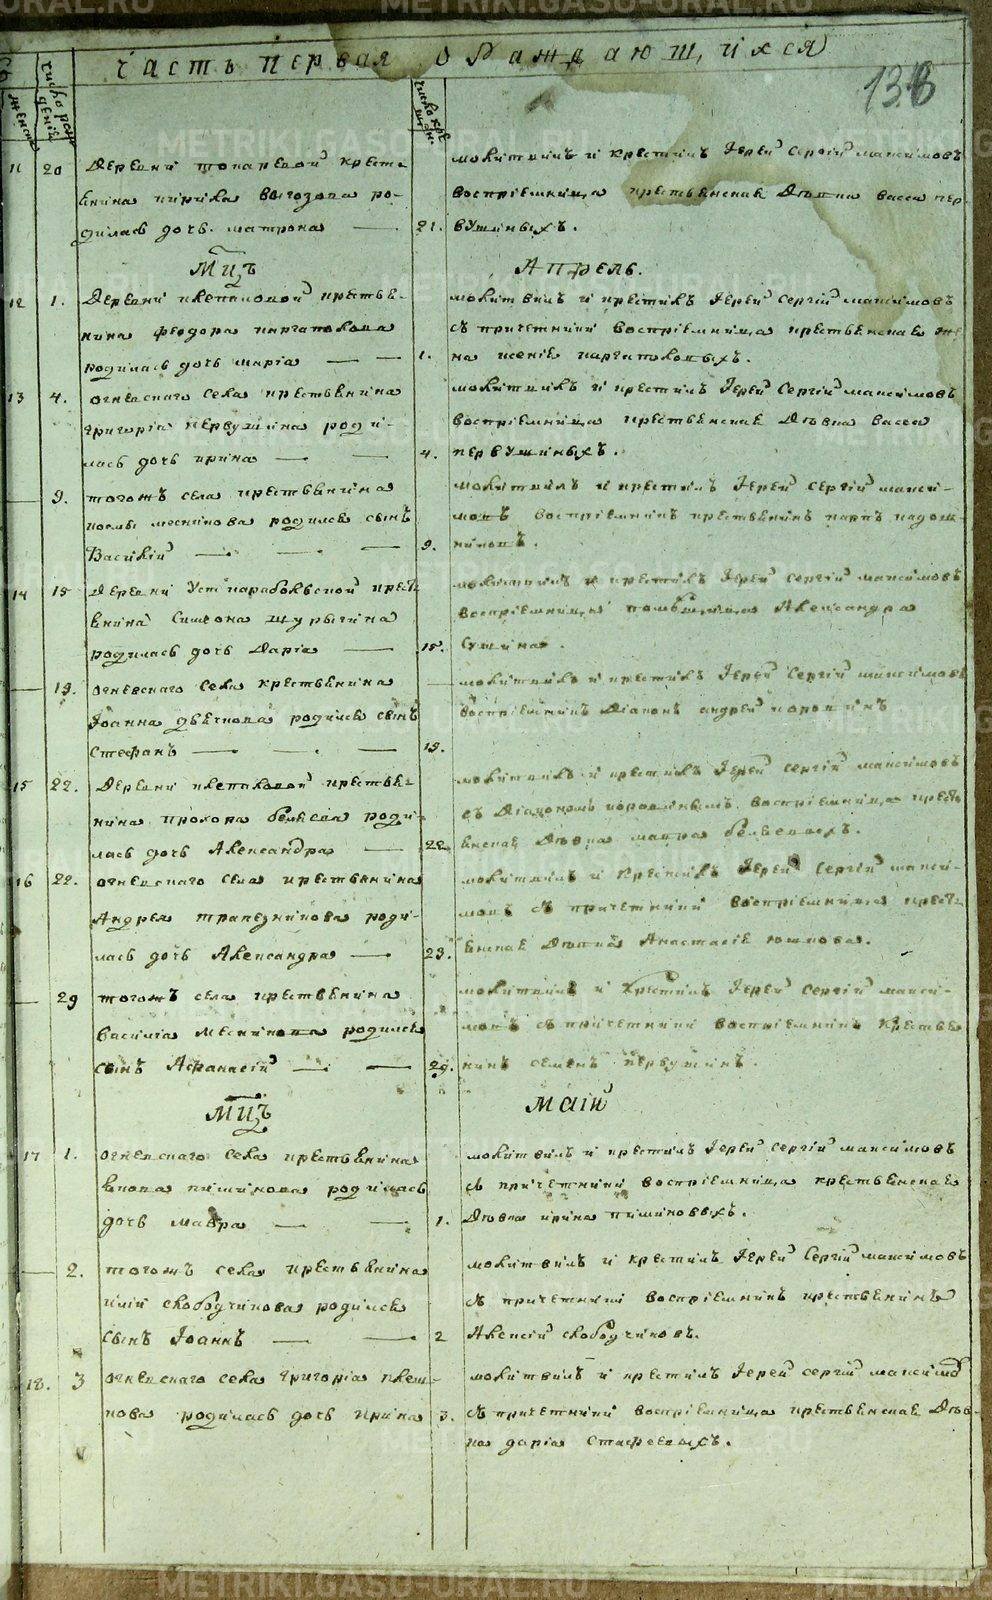 METRIKI.GASO-URAL.RU
Часть первая о Раждающихся
138
число рож
дений
женск
число кре
щен.
11 20 Деревни Токаревой крестья
нина Кирила Выгозова ро-
дилась дочь Матрона
молитвилъ и крестилъ Іерей Сергій Максимовъ
воспріемница крестьянская Дѣвка Васса пер
21. вушиныхъ.
Мцъ Апрель.
12 1. Деревни Клепаловой крестья-
нина Феодора
родилась дочь Марія
молитвилъ и крестилъ Іерей Сергій Максимовъ
съ причетники воспріемница крестьянская же
1. на Ксенія
13 4. Огневскаго села крестьянина
Григорія Первушина роди-
лась дочь Ирина
молитвилъ и крестилъ Іерей Сергій Максимовъ
воспріемница крестьянская Дѣвка Васса
4. Первушиныхъ.
9. тогожъ села крестьянина
Козмы Меснянкова родился сынъ
Василій
молитвилъ и крестилъ Іерей Сергій Макси-
мовъ воспріемникъ крестьянинъ Карпъ
9.
14 15 Деревни Усткарабольской крестья
нина Симеона Шурыгина
родилась дочь Дарія
молитвилъ и крестилъ Іерей Сергій Максимовъ
воспріемница Александра
15.
19. Огневскаго села крестьянина
Іоанна родился сынъ
Стефанъ
молитвилъ и крестилъ Іерей Сергій Максимовъ
воспріемникъ Діаконъ Андрей Коровинъ
19.
15 22. Деревни Клепаловой крестья-
нина Прохора Беляева роди-
лась дочь Александра
молитвилъ и крестилъ Іерей Сергій Максимовъ
съ Діакономъ Коровинымъ воспріемница кресть
22 янская Дѣвка Мавра Беляевыхъ.
16 22. Огневскаго села крестьянина
Андрея Трапезникова роди-
лась дочь Александра
молитвилъ и крестилъ Іерей Сергій Макси-
мовъ съ причетники воспріемница кресть
23. янская Дѣвка Анастасія Юшкова.
29 тогожъ села крестьянина
Василія Меснянкова родился
сынъ Афанасій
молитвилъ и крестилъ Іерей Сергій Макси-
мовъ съ причетники воспріемникъ крестья
29. нинъ Семенъ Первушинъ.
Мцъ Маій
17 1. Огневскаго села крестьянина
Якова Пишикова родилась
дочь Мавра
молитвилъ и крестилъ Іерей Сергій Максимовъ
съ причетники воспріемница крестьянская
1. Дѣвка Ирина Пишиковыхъ.
2. тогожъ села крестьянина
Иліи Слободчикова родился
сынъ Іоаннъ
молитвилъ и крестилъ Іерей Сергій Максимовъ
съ причетники воспріемникъ крестьянинъ
2 Алексій Слободчиковъ.
18. 3 Огневскаго села Григорія Клеш-
нова родилась дочь Ирина
молитвилъ и крестилъ Іерей Сергій Максимовъ
3. съ причетники воспріемница крестьянская Дѣв
ка Дарія Стаферовыхъ.
METRIKI.GASO-URAL.RU